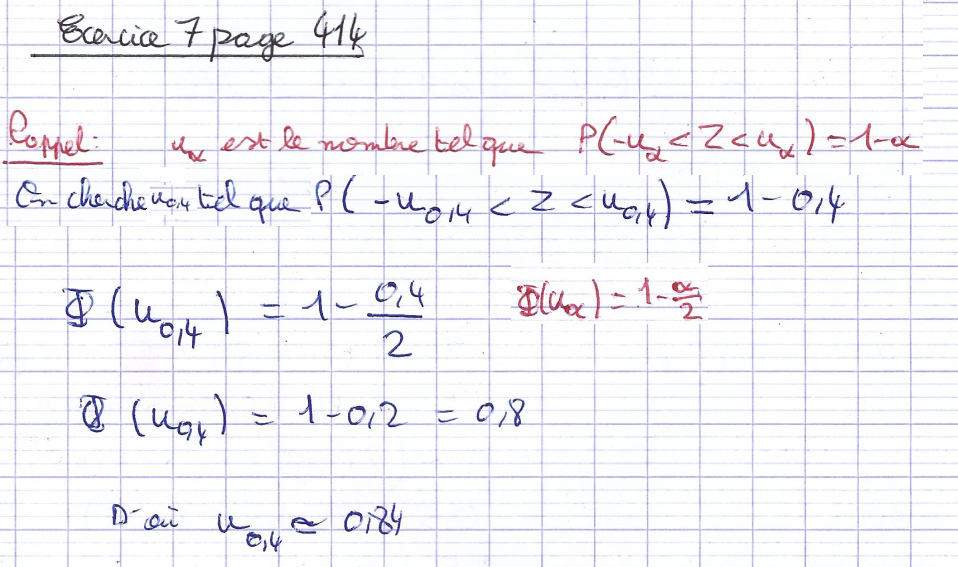 Exercice 7 page 414
Rappel: u_α est le nombre tel que P(-u_α < Z < u_α) = 1-α
On cherche u_0,4 tel que P(-u_0,4 < Z < u_0,4) = 1-0,4
Φ(u_0,4) = 1 - 0,4/2 Φ(u_α) = 1 - α/2
Φ(u_0,4) = 1-0,2 = 0,8
D'où u_0,4 ≃ 0,84